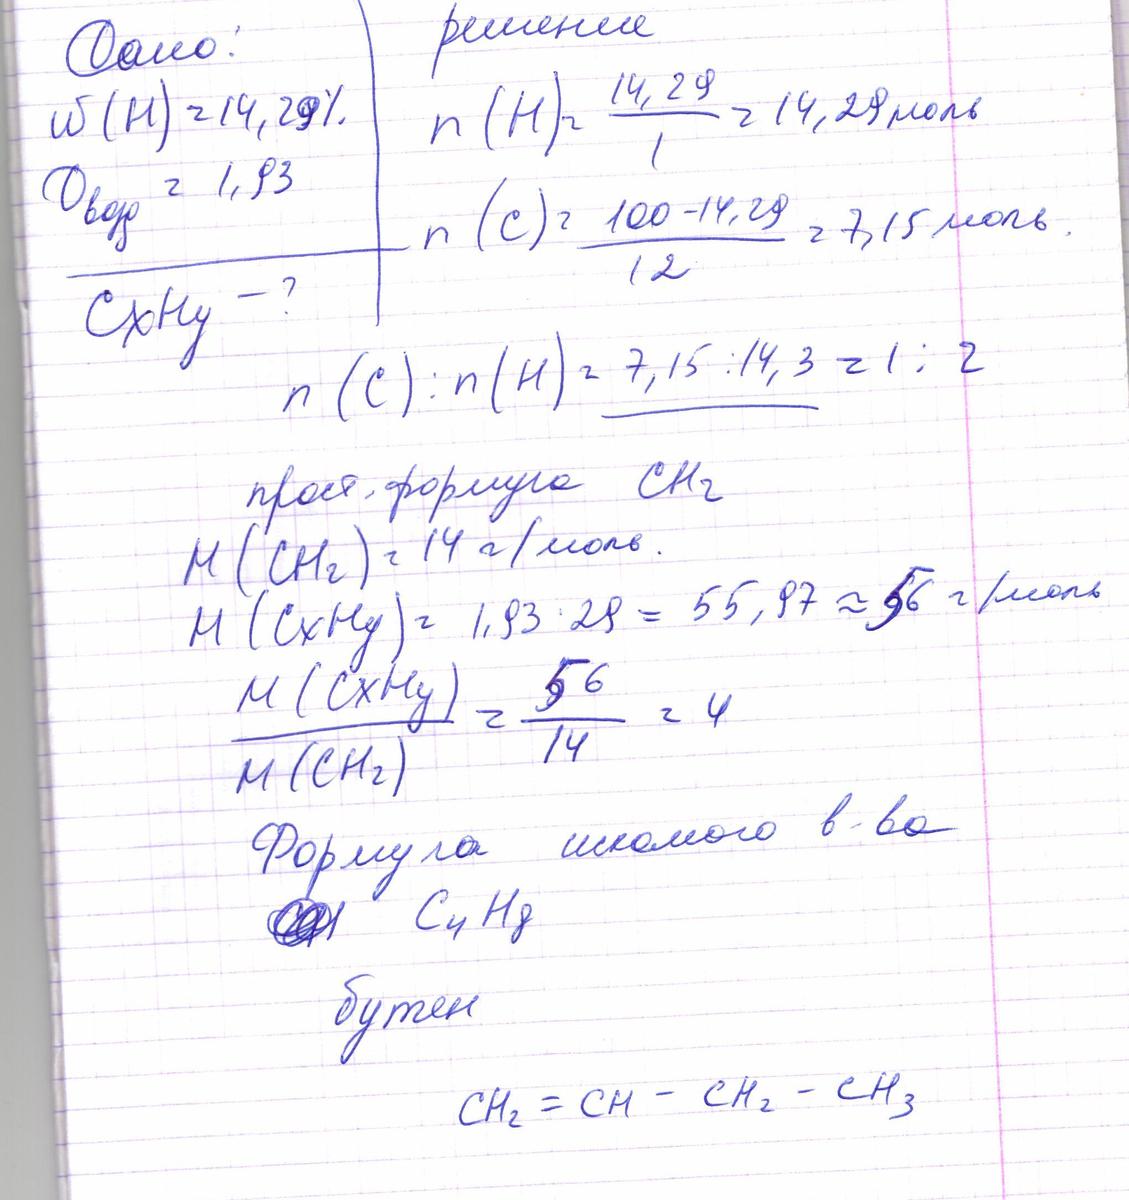 Дано:
ω(H) = 14,29%
D возд = 1,93
CxHy - ?
решение
n(H) = 14,29 / 1 = 14,29 моль
n(C) = 100-14,29 / 12 = 7,15 моль.
n(C):n(H) = 7,15:14,3 = 1:2
прост. формула CH₂
M(CH₂) = 14 г/моль.
M(CxHy) = 1,93·29 = 55,97 ≈ 56 г/моль
M(CxHy) / M(CH₂) = 56 / 14 = 4
Формула искомого в-ва
C₄H₈
бутен
CH₂ = CH - CH₂ - CH₃